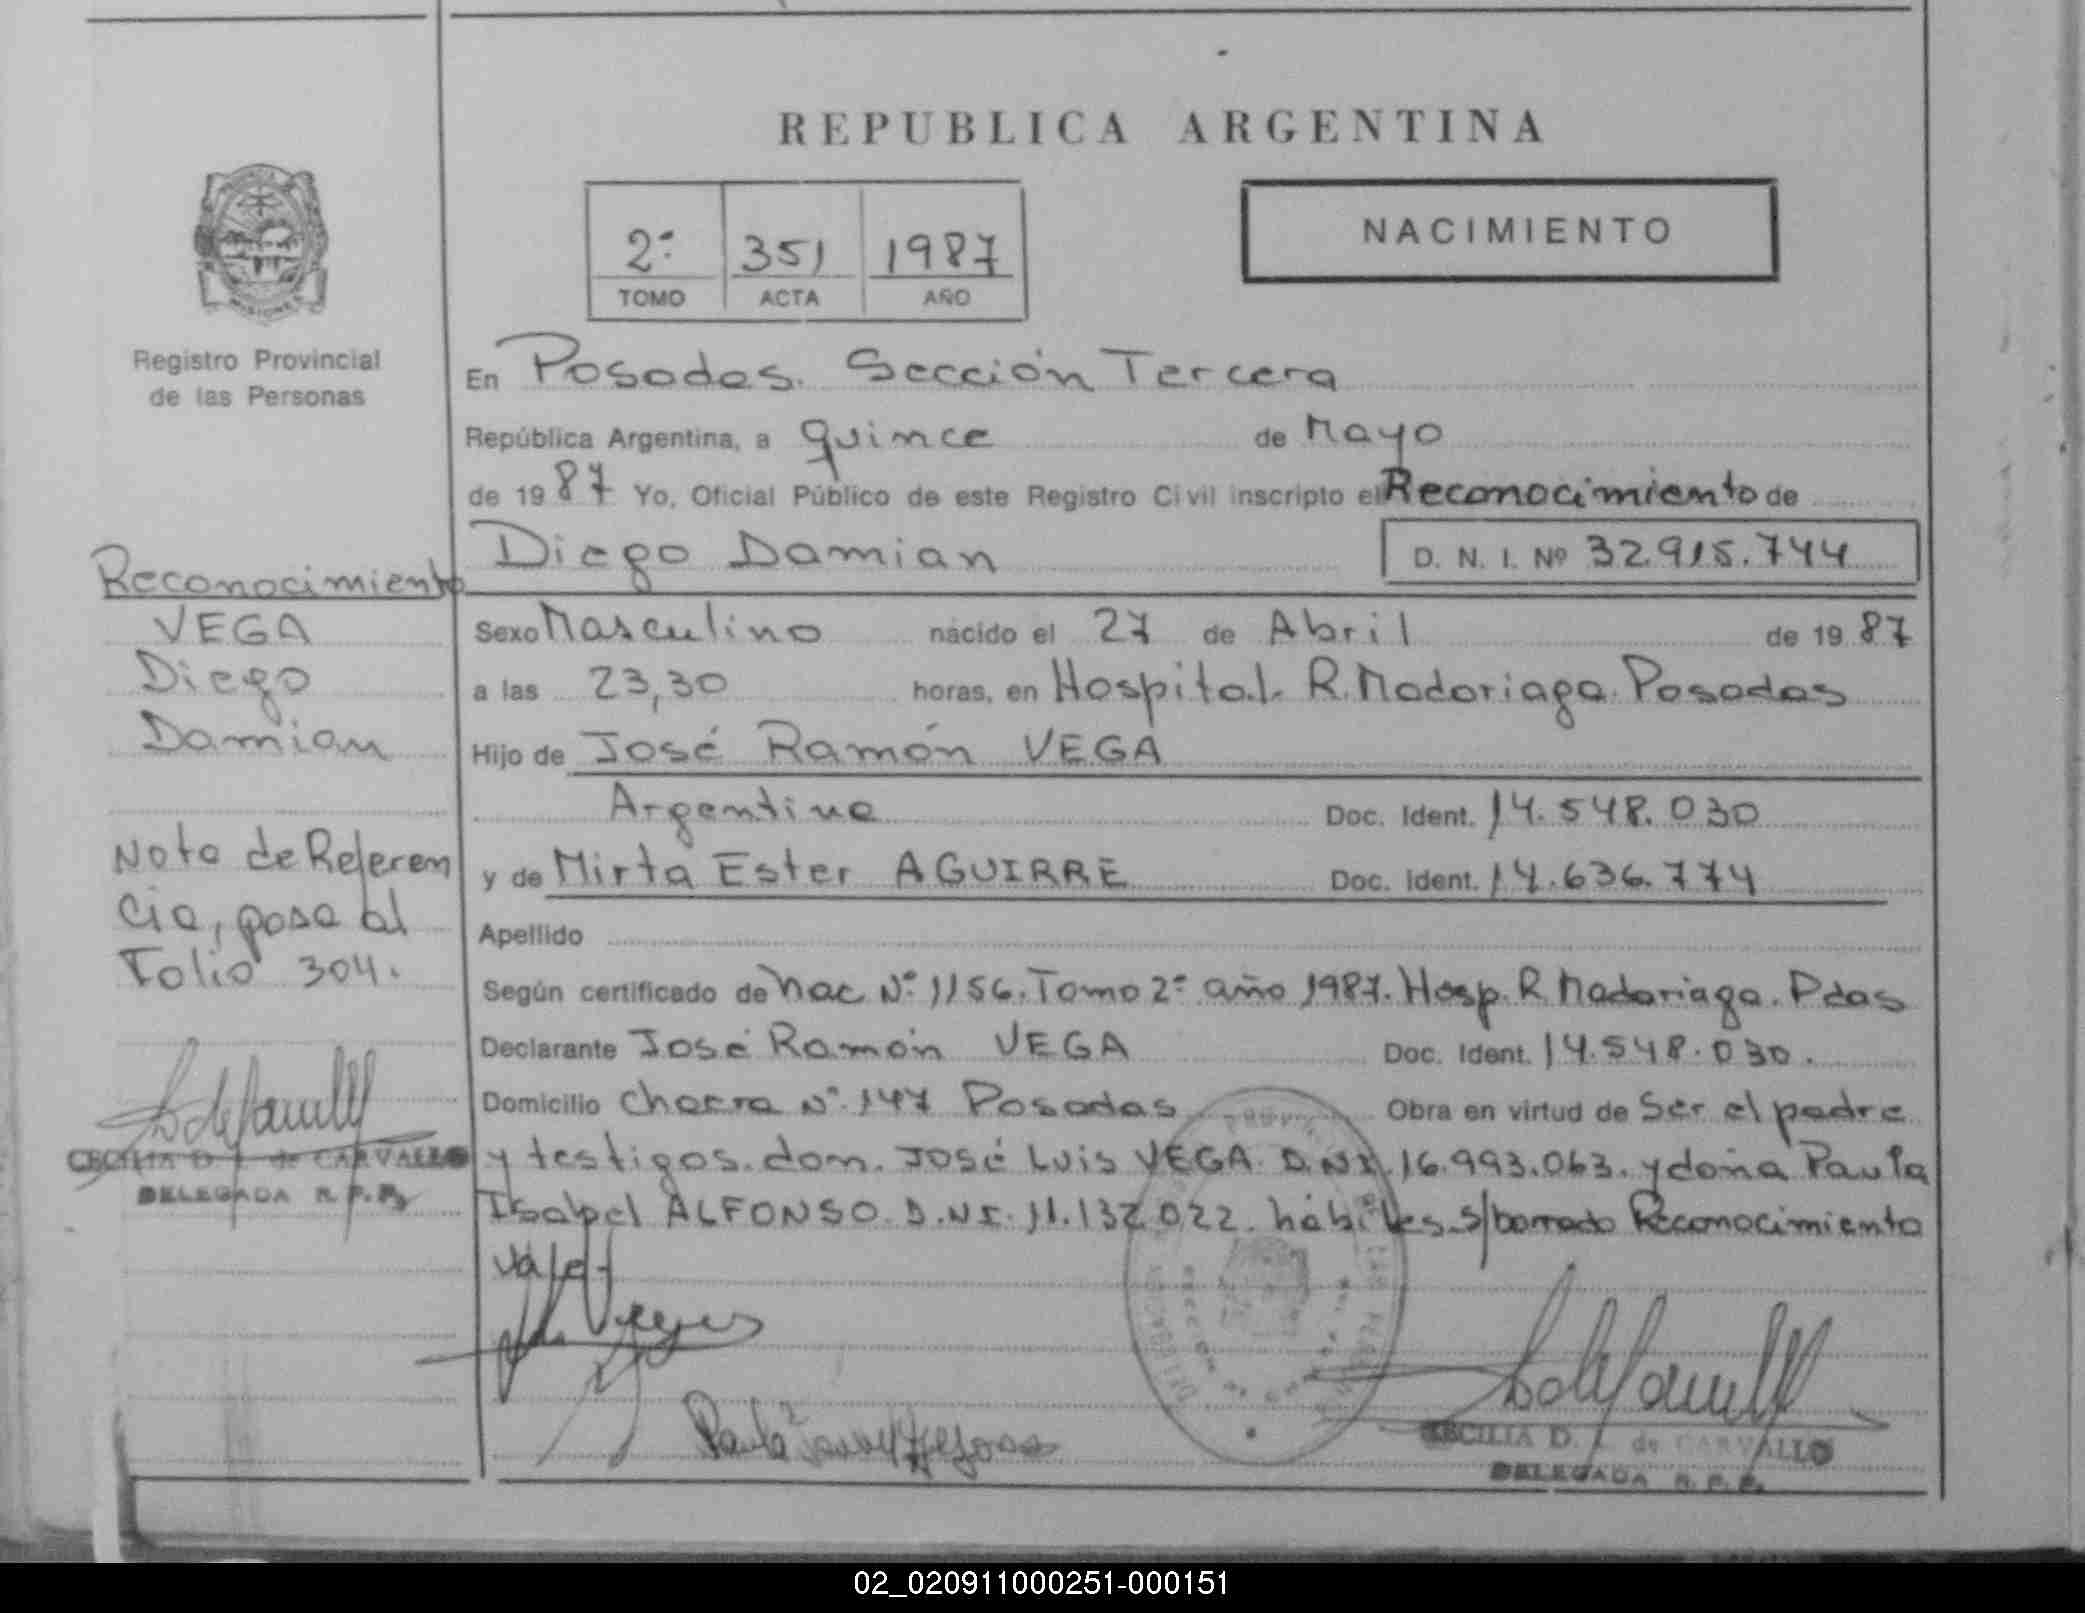 REPUBLICA ARGENTINA
NACIMIENTO
2º 351 1987
TOMO ACTA AÑO
Registro Provincial
de las Personas
En Posadas. Sección Tercera
República Argentina, a quince de Mayo
de 1987 Yo, Oficial Público de este Registro Civil inscripto el Reconocimiento de
Diego Damian D. N. I. Nº 32.915.744
Sexo Masculino nacido el 27 de Abril de 1987
a las 23,30 horas, en Hospital. R. Madariaga. Posadas
Hijo de José Ramón VEGA
Argentino Doc. Ident. 14.548.030
y de Mirta Ester AGUIRRE Doc. Ident. 14.636.774
Apellido
Según certificado de Nac Nº 1156. Tomo 2º año 1987. Hosp. R. Madariaga. Pdas
Declarante José Ramón VEGA Doc. Ident. 14.548.030.
Domicilio Chacra Nº 147 Posadas Obra en virtud de Ser el padre
y testigos. don. José Luis VEGA. D.N.I. 16.993.063. y doña Paula
Isabel ALFONSO. D.N.I. 11.132.022. hábiles. S/borrado Reconocimiento
Vale.
Reconocimiento
VEGA
Diego
Damian
Nota de Referen
cia, pasa al
Folio 304.
CECILIA D. de CARVALLO
DELEGADA R. P. P.
CECILIA D. de CARVALLO
DELEGADA R. P. P.
02_020911000251-000151